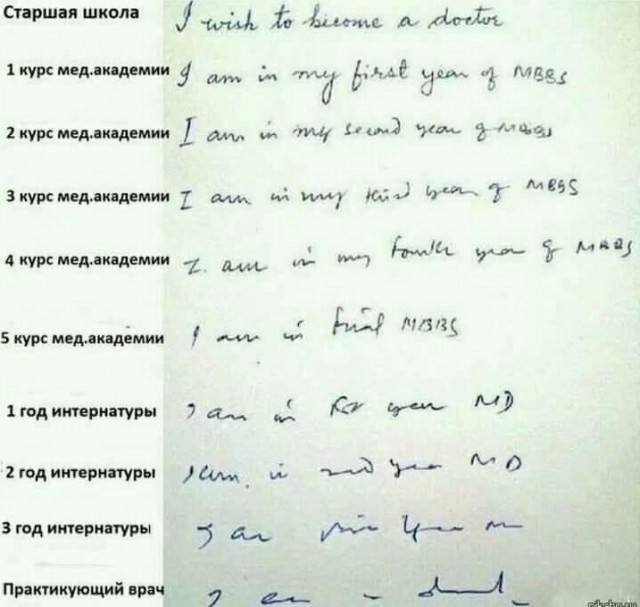 Старшая школа I wish to become a doctor
1 курс мед.академии I am in my first year of MBBS
2 курс мед.академии I am in my second year of MBBS
3 курс мед.академии I am in my third year of MBBS
4 курс мед.академии I am in my fourth year of MBBS
5 курс мед.академии I am in final MBBS
1 год интернатуры I am in year MD
2 год интернатуры I am in year MD
3 год интернатуры I am
Практикующий врач I am